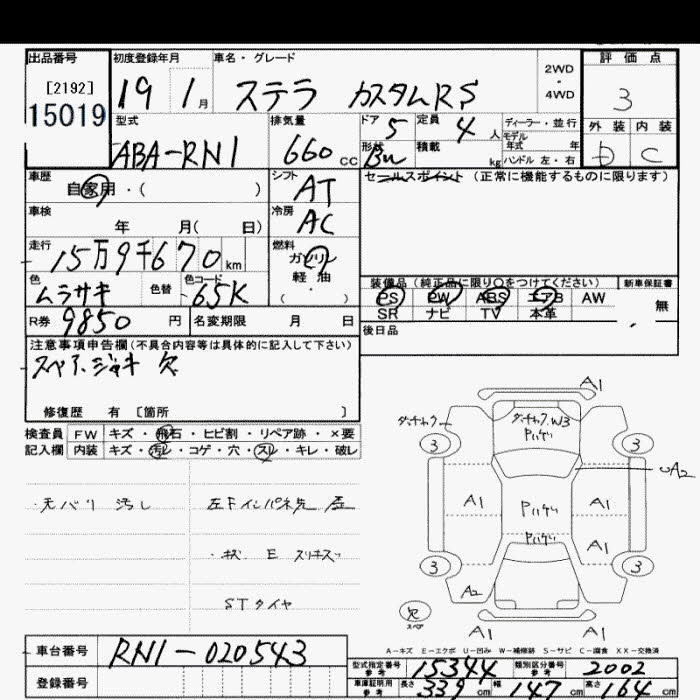 出品番号 初度登録年月 車名・グレード 2WD・4WD 評価点
[2192]
15019 19 1月 ステラ カスタムRS 3
型式 排気量 ドア 5 定員 4人 ディーラー・並行 外装 内装
ABA-RN1 660cc 形状 Bu 積載 kg モデル年式 年 ハンドル 左・右 D C
車歴 自家用・( ) シフト AT セールスポイント(正常に機能するものに限ります)
車検 年 月( 日) 冷房 AC
走行 15万9千670km 燃料 ガソリン
軽・油
( )
色 ムラサキ 色替 色コード 65K 装備品(純正品に限り○をつけてください) 新車保証書
PS PW ABS エアB AW 無
SR ナビ TV 本革
R券 9850円 名変期限 月 日 後日品
注意事項申告欄(不具合内容等は具体的に記入して下さい)
スペア、ジャキ 欠
修復歴 有 [箇所 ]
検査員 FW キズ・飛石・ヒビ割・リペア跡・×要
記入欄 内装 キズ・汚レ・コゲ・穴・スレ・キレ・破レ
A1
W3
Pハゲ
3 3
A2
A1 Pハゲ A1
Pハゲ A1
3 3
A2
欠
スペア
A1 A1
STタイヤ
A-キズ E-エクボ U-凹み W-補修跡 S-サビ C-腐食 XX-交換済
車台番号 RN1-020543 型式指定番号 参考 15344 類別区分番号 参考 2002
登録番号 車庫証明用 参考 長さ 339cm 幅 147cm 高さ 164cm